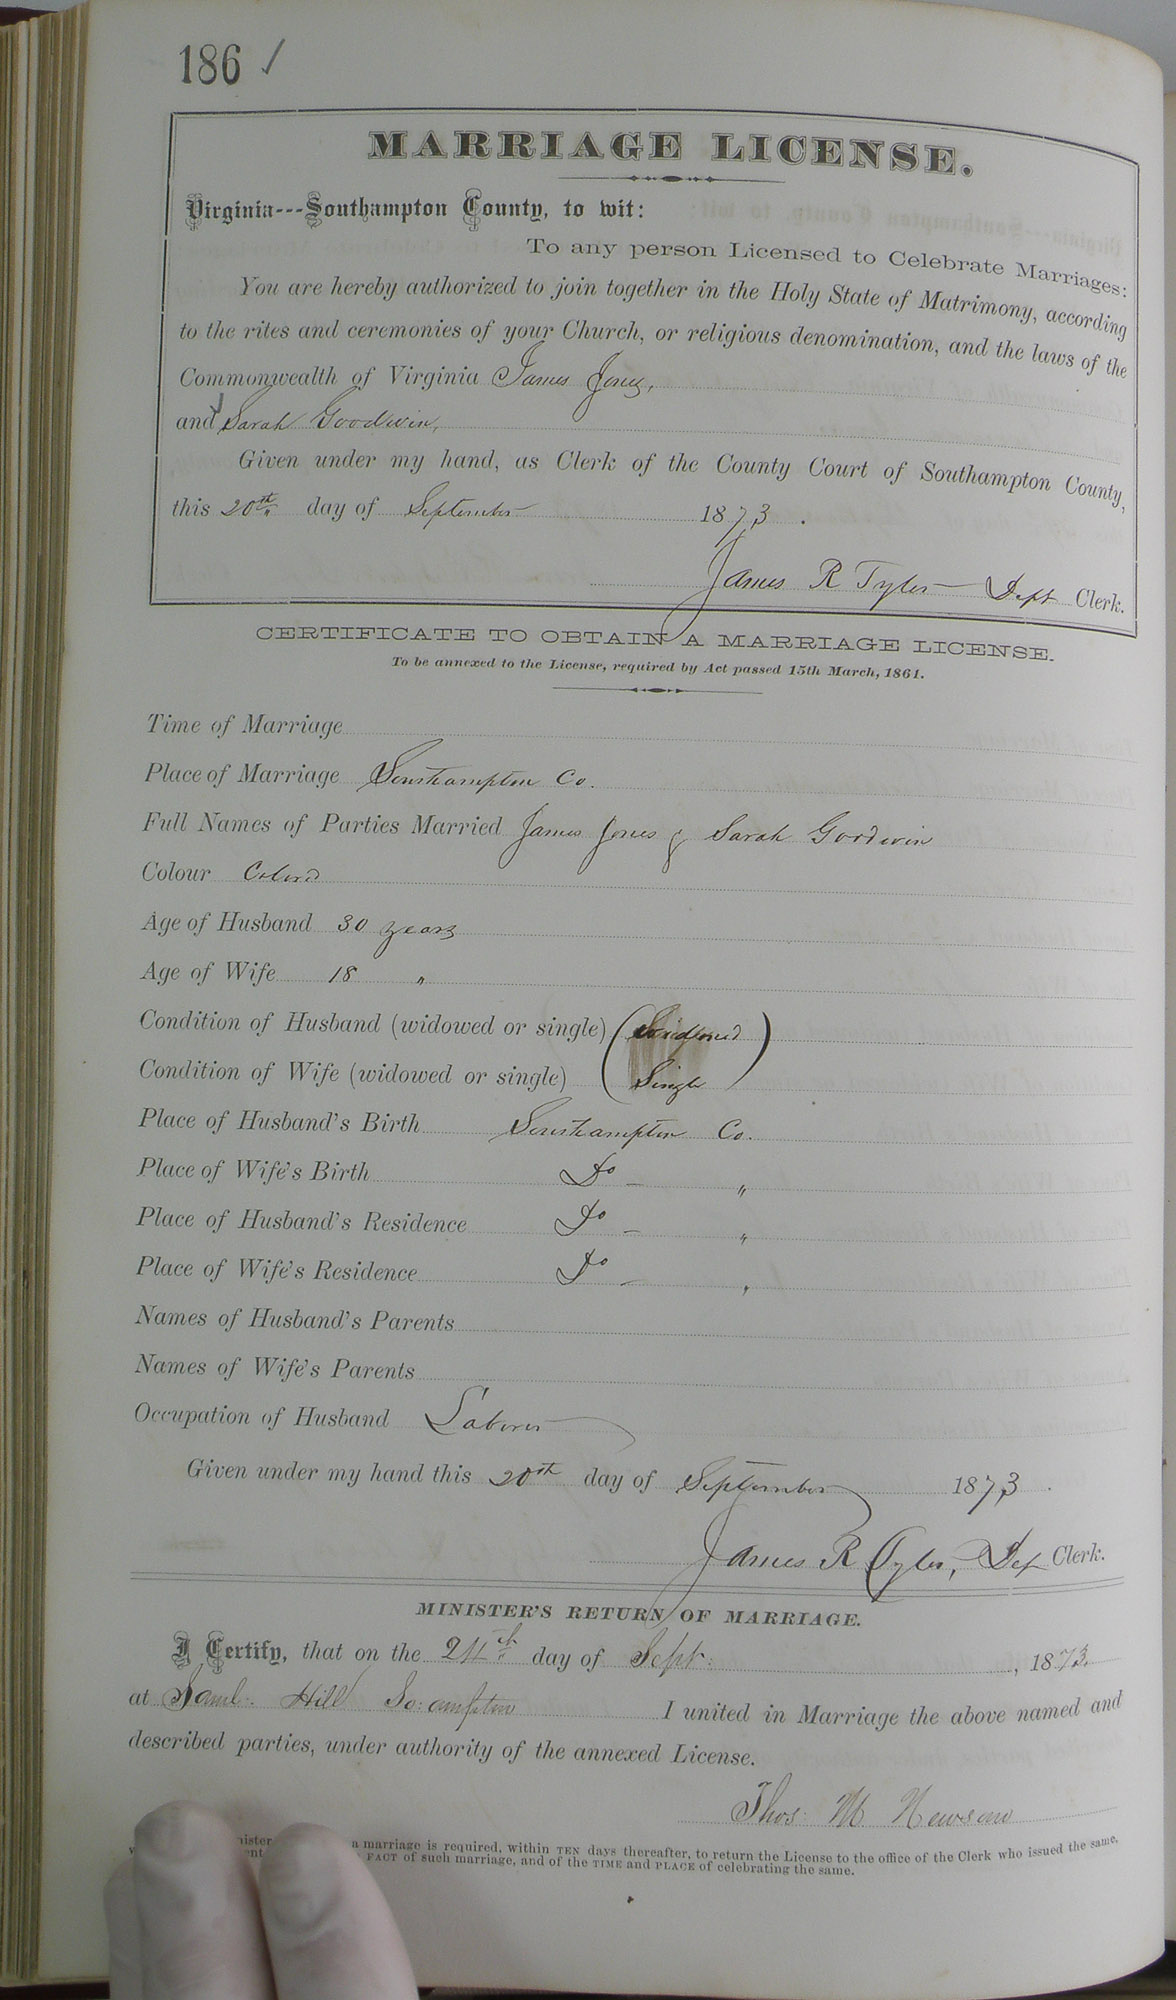 186 ✓
MARRIAGE LICENSE.
Virginia---Southampton County, to wit:
To any person Licensed to Celebrate Marriages:
You are hereby authorized to join together in the Holy State of Matrimony, according
to the rites and ceremonies of your Church, or religious denomination, and the laws of the
Commonwealth of Virginia James Jones,
and Sarah Goodwin,
Given under my hand, as Clerk of the County Court of Southampton County,
this 20th day of September 1873.
James R Tyler Dept Clerk.
CERTIFICATE TO OBTAIN A MARRIAGE LICENSE.
To be annexed to the License, required by Act passed 15th March, 1861.
Time of Marriage
Place of Marriage Southampton Co.
Full Names of Parties Married James Jones & Sarah Goodwin
Colour Colord
Age of Husband 30 years
Age of Wife 18 "
Condition of Husband (widowed or single) (Widowed)
Condition of Wife (widowed or single) (Single)
Place of Husband's Birth Southampton Co.
Place of Wife's Birth Do — "
Place of Husband's Residence Do — "
Place of Wife's Residence Do — "
Names of Husband's Parents
Names of Wife's Parents
Occupation of Husband Laborer
Given under my hand this 20th day of September 1873.
James R Tyler, Dep Clerk.
MINISTER'S RETURN OF MARRIAGE.
I Certify, that on the 24th day of Sept: , 1873.
at Saml. Hill So:ampton I united in Marriage the above named and
described parties, under authority of the annexed License.
Thos: M Newsom
a marriage is required, within TEN days thereafter, to return the License to the office of the Clerk who issued the same,
FACT of such marriage, and of the TIME and PLACE of celebrating the same.